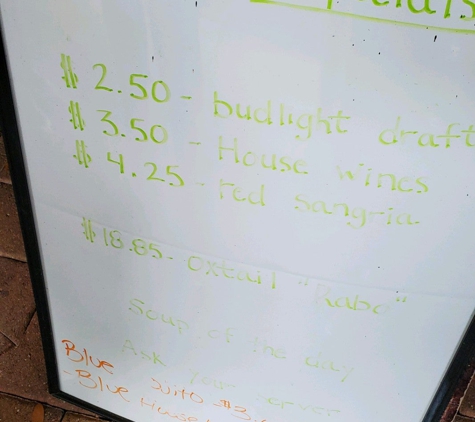 $ 2.50 - budlight draft
$ 3.50 - House wines
$ 4.25 - red sangria
$ 18.85 - Oxtail "Rabo"
Soup of the day
Ask your server
Blue
- Blue House